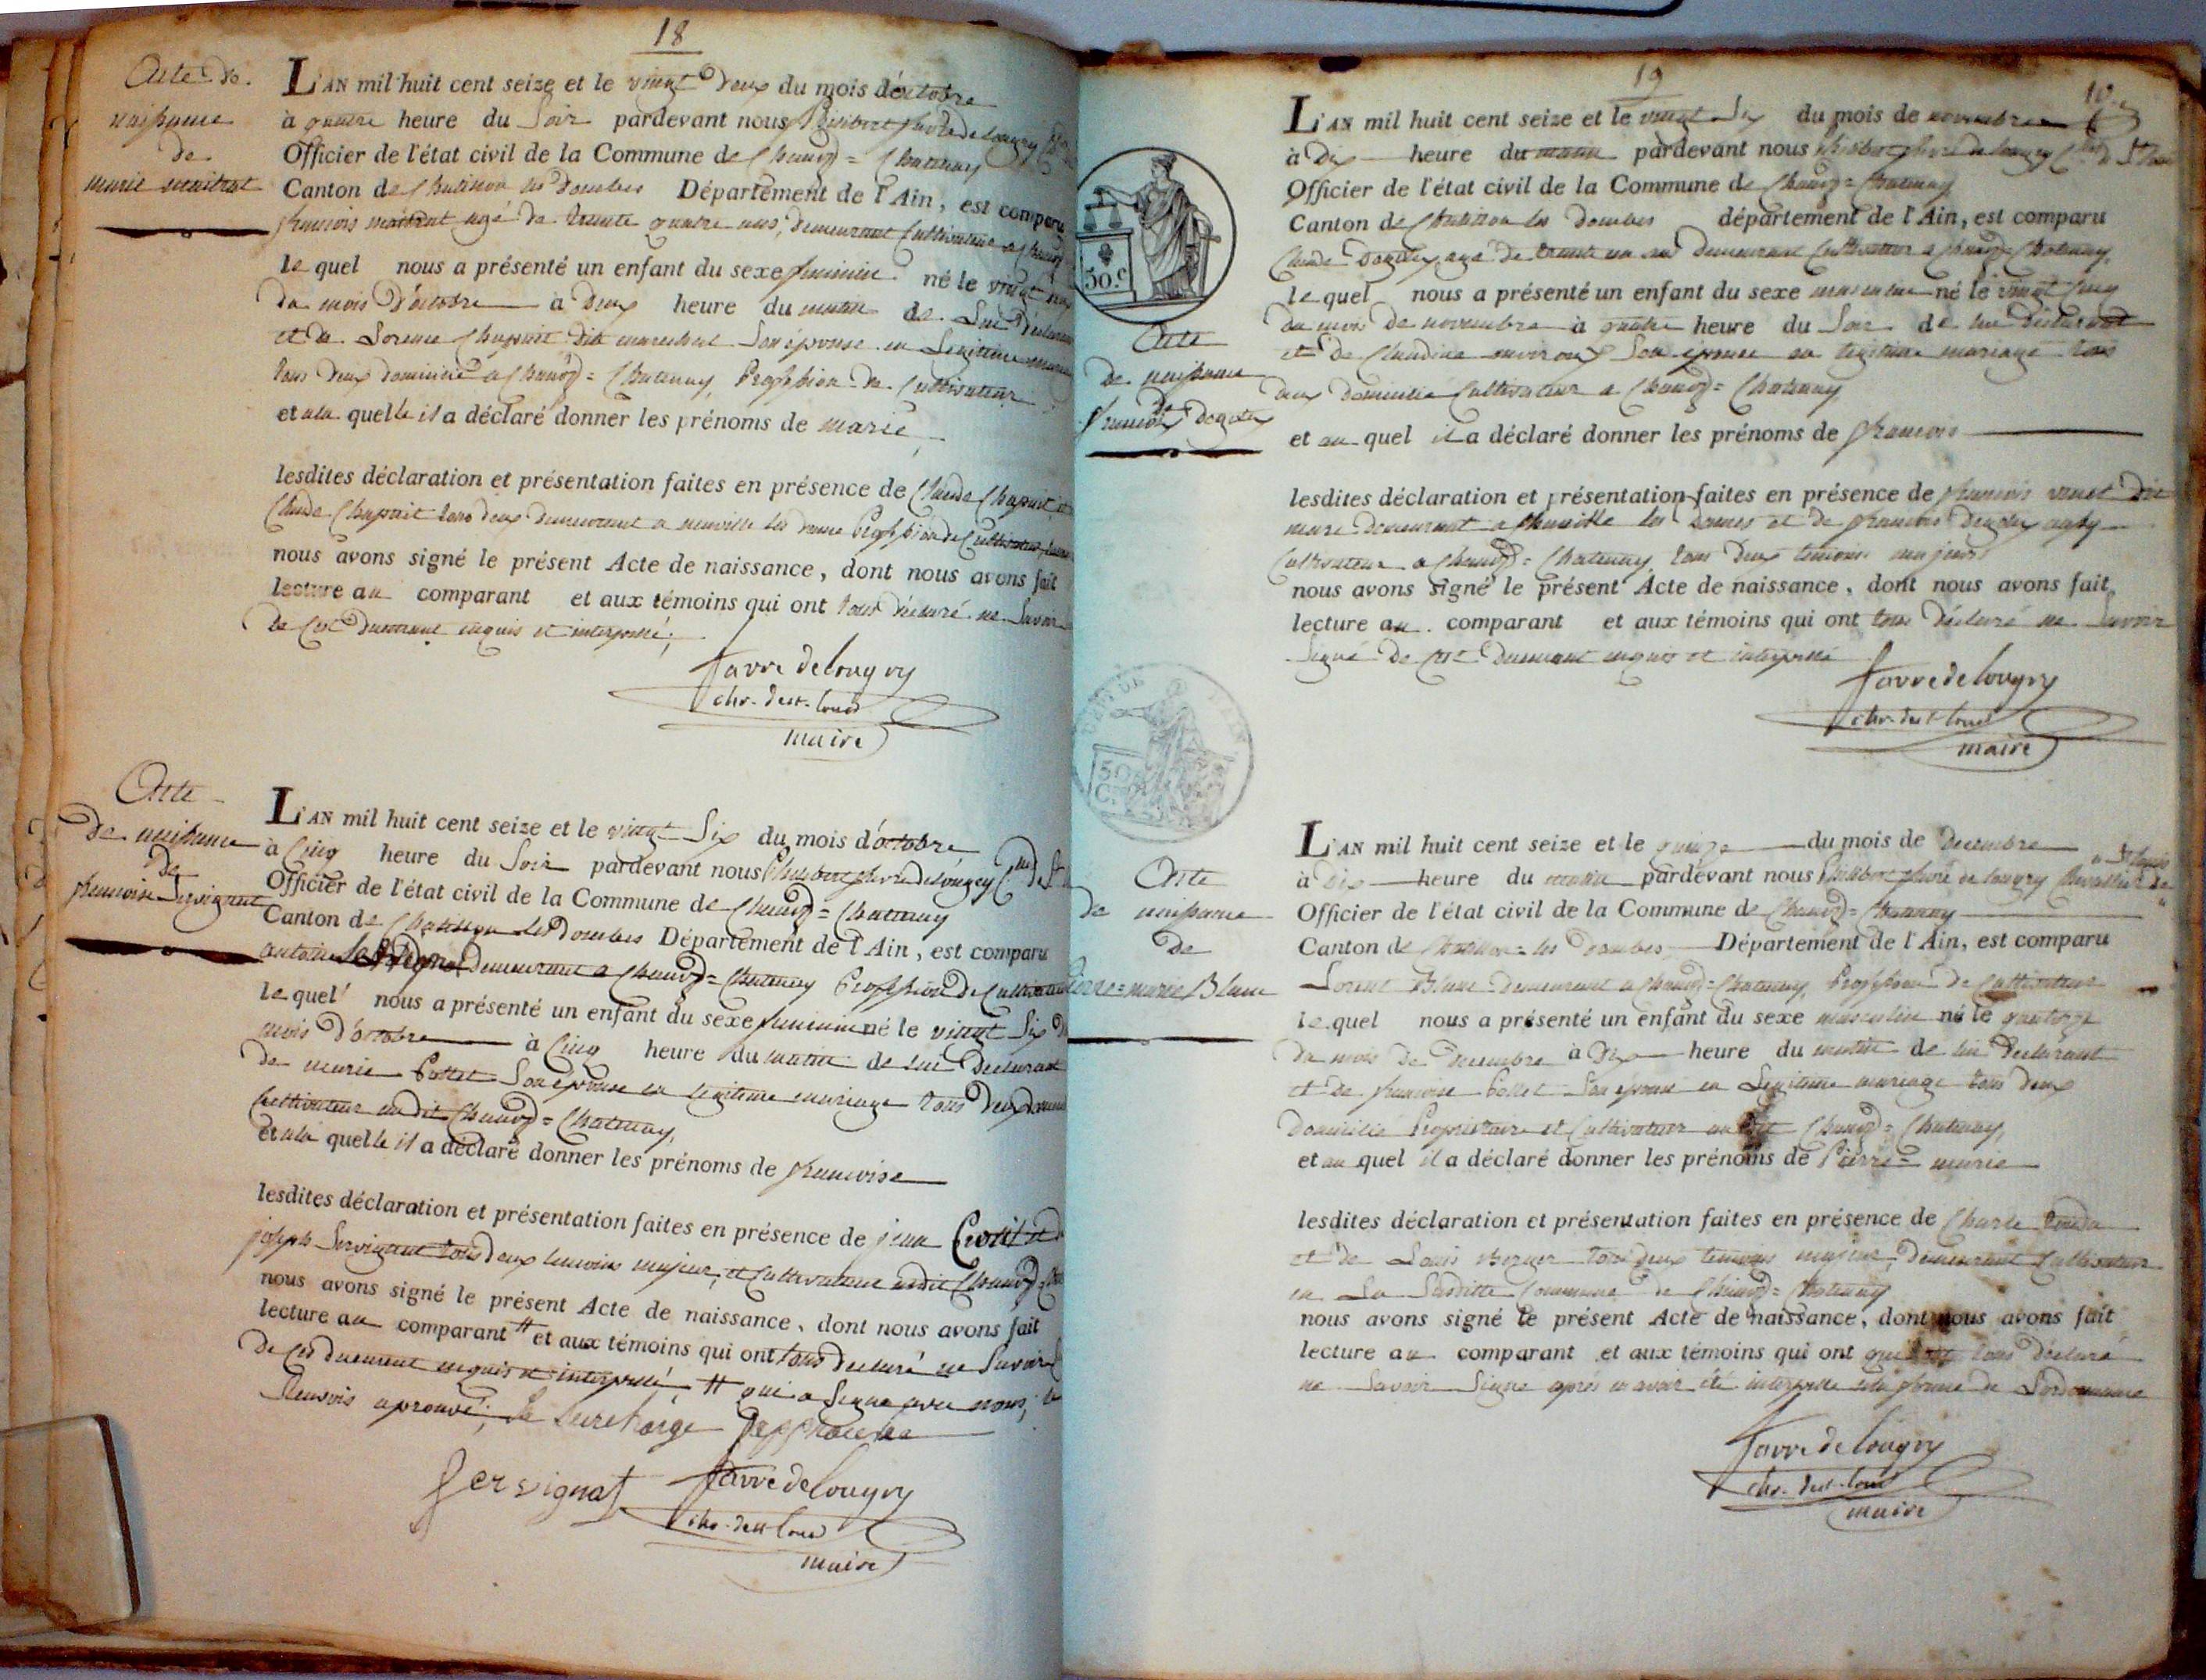 18
Acte de
naissance
de
marie maitrat
L'AN mil huit cent seize et le vingt Deux du mois d'octobre
à quatre heure du Soir pardevant nous Philibert favre de Longry
Officier de l'état civil de la Commune de Chanoz = Chatenay
Canton de Chatillon les Dombes Département de l'Ain, est comparu
francois maitrat agé de trente quatre ans, demeurant Cultivateur a Chanoz
lequel nous a présenté un enfant du sexe feminin né le vingt
du mois d'octobre à Deux heure du matin de Lui Déclarant
et de Lorence Chapuit dit marechal Son épouse en Legitime mariage
tous deux domicilié a Chanoz = Chatenay, Profession de Cultivateur
et a la quelle il a déclaré donner les prénoms de marie
lesdites déclaration et présentation faites en présence de Claude Chapuit et
Claude Chapuit tous deux demeurant a neuville les dame Profession de Cultivateur
nous avons signé le présent Acte de naissance, dont nous avons fait
lecture au comparant et aux témoins qui ont tous déclaré ne Savoir
de Cest Dument enquis et interpellé
favre de Longry
chr. de st. Louis
maire
Acte
de naissance
de
francoise Servignat
L'AN mil huit cent seize et le vingt Six du mois d'octobre
à Cinq heure du Soir pardevant nous Philibert favre de Longry
Officier de l'état civil de la Commune de Chanoz = Chatenay
Canton de Chatillon les Dombes Département de l'Ain, est comparu
antoine Servignat Demeurant a Chanoz = Chatenay Profession de Cultivateur
lequel nous a présenté un enfant du sexe feminin né le vingt Six du
mois d'octobre à Cinq heure du matin de lui Declarant
de marie Pottet Son épouse en legitime mariage tous Deux
Cultivateur audit Chanoz = Chatenay,
et a la quelle il a déclaré donner les prénoms de francoise
lesdites déclaration et présentation faites en présence de jean
joseph Servignat tous deux temoins majeur, et Cultivateur audit Chanoz
nous avons signé le présent Acte de naissance, dont nous avons fait
lecture au comparant # et aux témoins qui ont tous declaré ne Savoir
de Ces duement enquis et interpellé # qui a Signé avec nous,
Renvois aprouvé, la Surcharge
Servignat favre de Longry
chr. de st. Louis
maire
19
10
L'AN mil huit cent seize et le vingt Six du mois de novembre
à Dix heure du matin pardevant nous Philibert favre de Longry
Officier de l'état civil de la Commune de Chanoz = Chatenay
Canton de Chatillon les Dombes département de l'Ain, est comparu
Claude agé de trente un ans Demeurant Cultivateur a Chanoz = Chatenay,
lequel nous a présenté un enfant du sexe masculin né le vingt Cinq
du mois de novembre à quatre heure du Soir de lui déclarant
et de Claudine Son épouse en legitime mariage tous
deux Domicilié Cultivateur a Chanoz = Chatenay
et au quel il a déclaré donner les prénoms de francois
50.C
Acte
de naissance
de
francois
lesdites déclaration et présentation faites en présence de francois
demeurant a les Dames et de francois
Cultivateur a Chanoz = Chatenay, tous Deux temoins majeurs
nous avons signé le présent Acte de naissance, dont nous avons fait
lecture au comparant et aux témoins qui ont tous déclaré ne Savoir
Signé de Cest Dument enquis et interpellé
favre de Longry
chr. de st. Louis
maire
50
C.
Acte
de naissance
de
Pierre = marie Blanc
L'AN mil huit cent seize et le quinze du mois de Decembre
à Dix heure du matin pardevant nous Philibert favre de Longry Chevallier de St Louis
Officier de l'état civil de la Commune de Chanoz = Chatenay
Canton de Chatillon = les Dombes Département de l'Ain, est comparu
Lorent Blanc demeurant a Chanoz = Chatenay, Profession de Cultivateur
lequel nous a présenté un enfant du sexe masculin né le quatorze
du mois de Decembre à Dix heure du matin de lui Declarant
et de francoise Pottet Son épouse en Legitime mariage tous deux
domicilié Proprietaire et Cultivateur audit Chanoz = Chatenay,
et au quel il a déclaré donner les prénoms de Pierre = marie
lesdites déclaration et présentation faites en présence de Charle
et de Louis tous deux temoins majeur, Demeurant Cultivateur
en La Susditte Commune de Chanoz = Chatenay
nous avons signé le présent Acte de naissance, dont nous avons fait
lecture au comparant et aux témoins qui ont tous déclaré
ne Savoir Signe après avoir été interpellé a la forme de Lordonnance
favre de Longry
chr. de st. Louis
maire